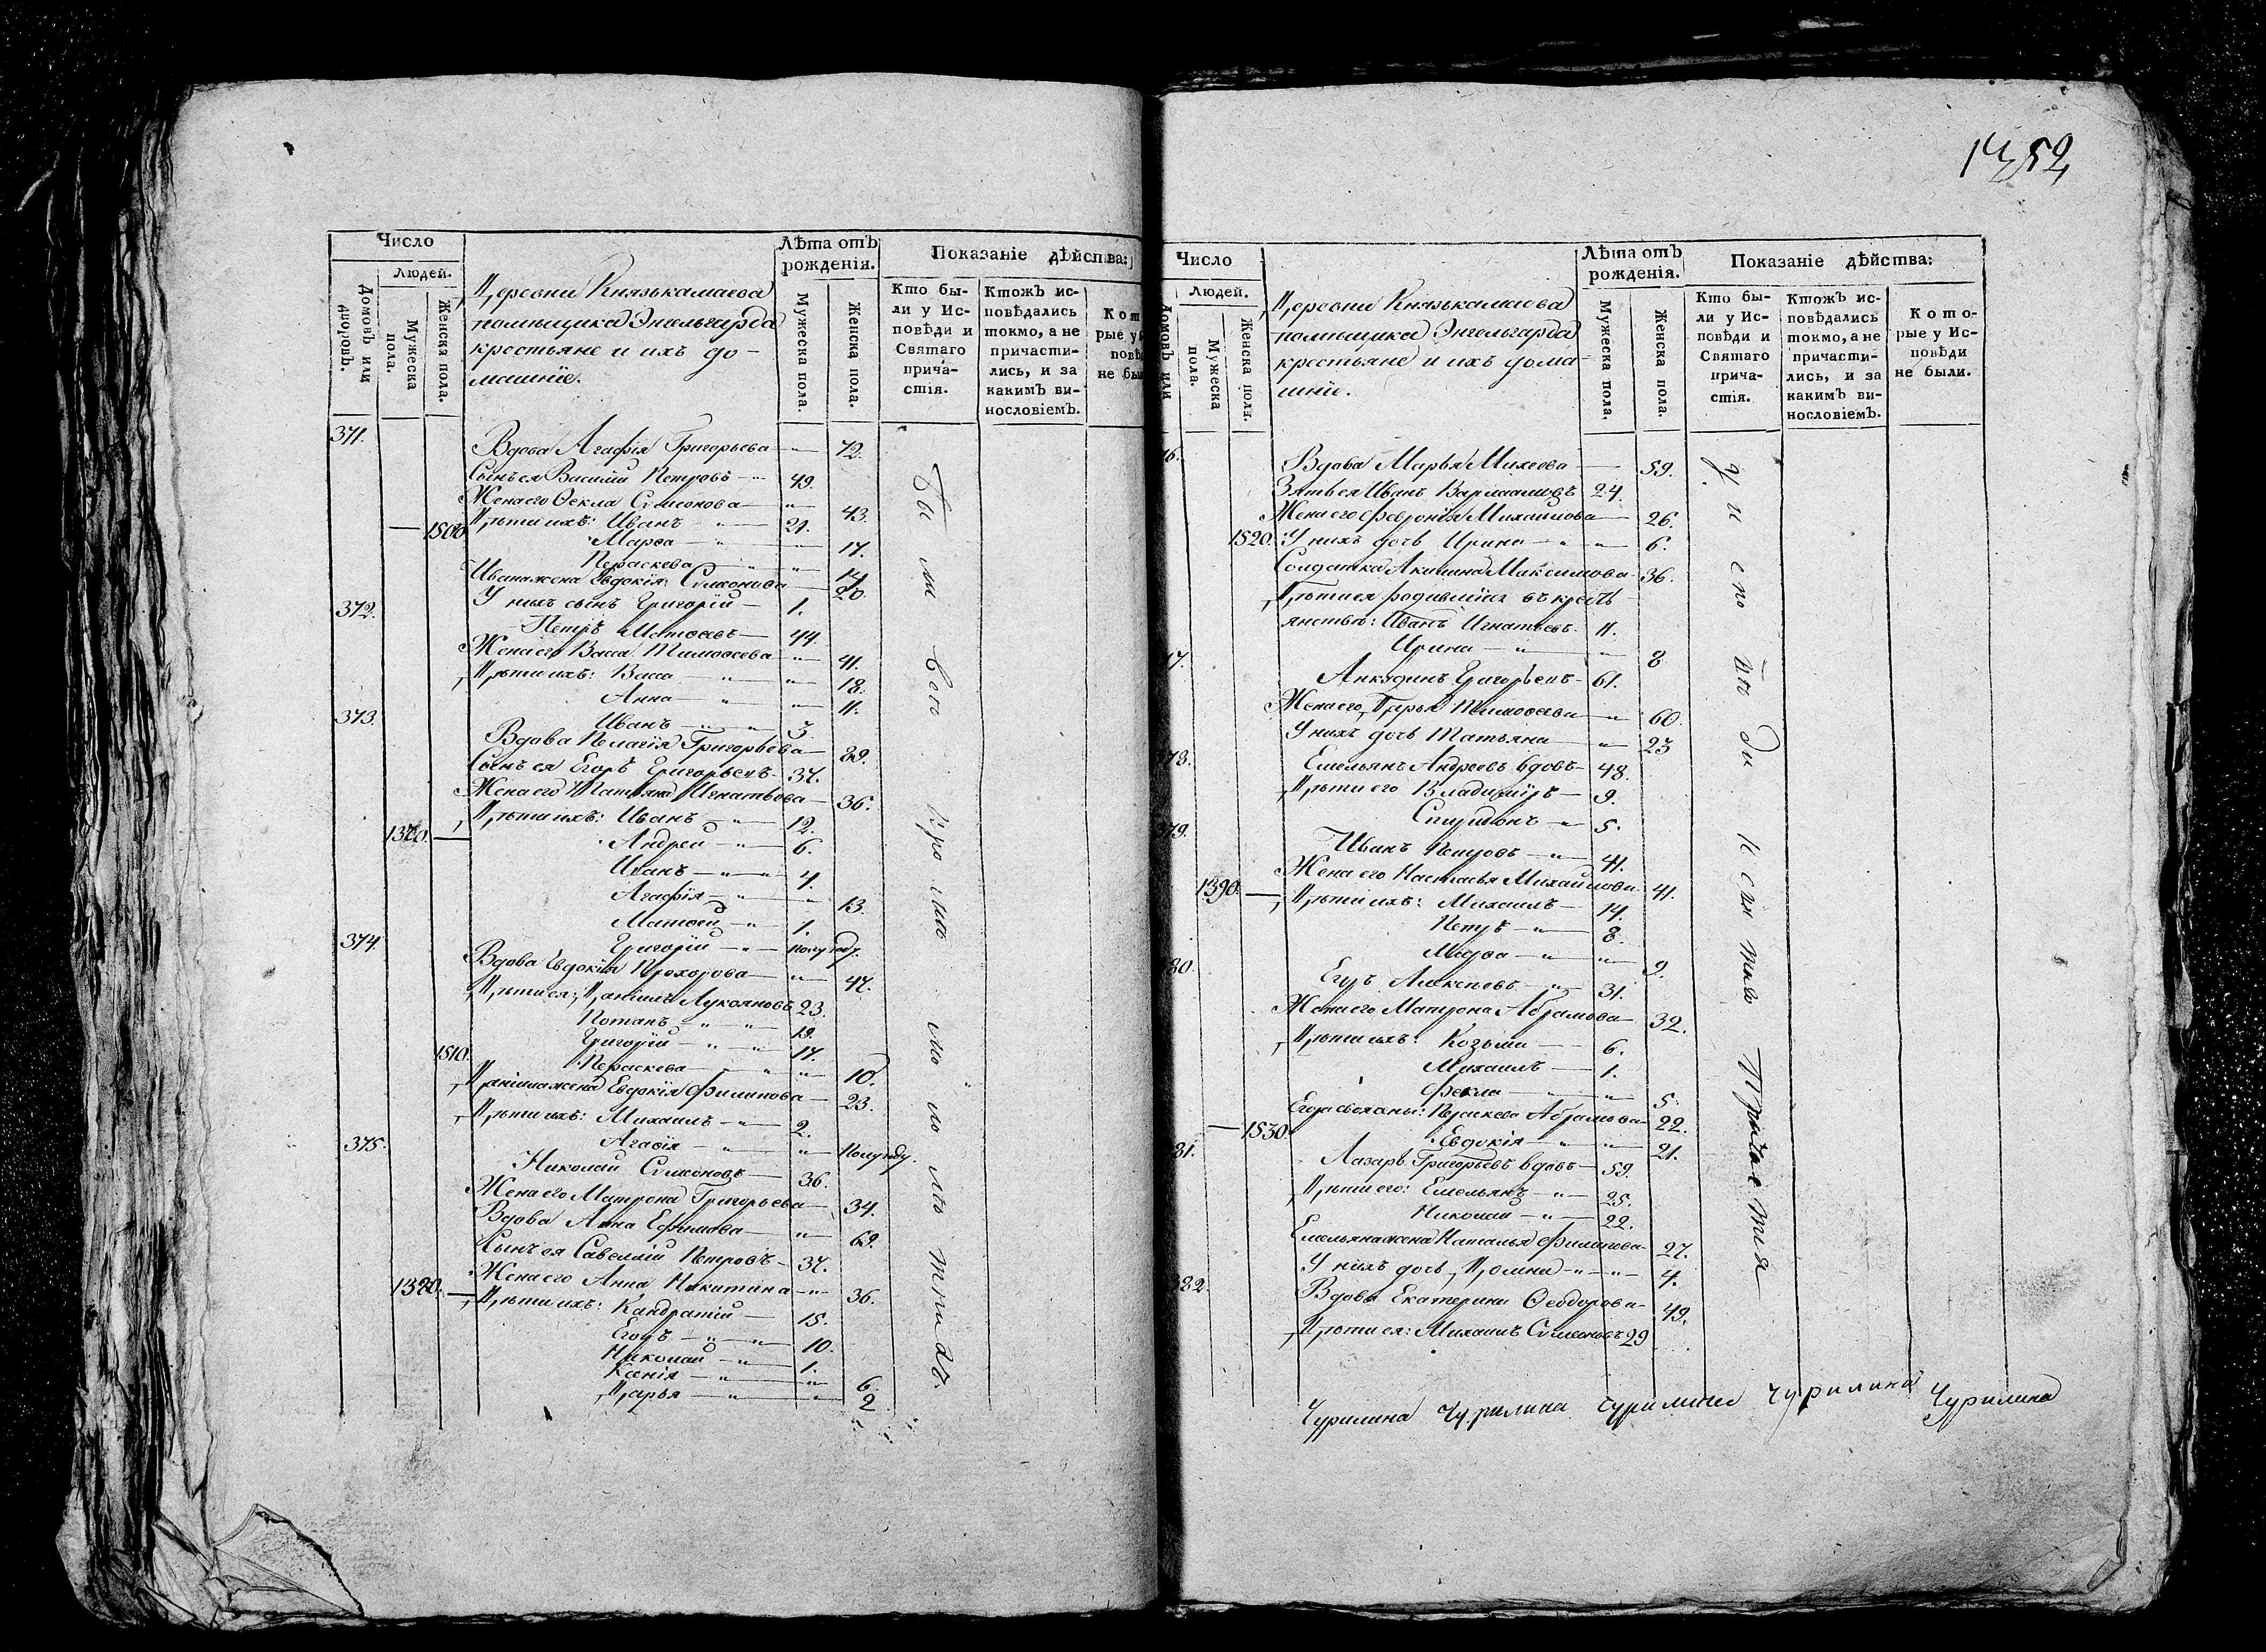 Число
Людей.
Домовъ или дворовъ.
Мужеска пола.
Женска пола.
Деревни Князькамаева
помѣщика Энгельгарда
крестьяне и ихъ до-
машнїе.
Лѣта отъ рожденїя.
Мужеска пола.
Женска пола.
Показанїе дѣйства:
Кто бы-
ли у Ис-
повѣди и
Святаго
прича-
стїя.
Ктожъ ис-
повѣдались
токмо, а не
причасти-
лись, и за
какимъ ви-
нословїемъ.
371. Вдова Агафїя Григорьева — 72.
Сынъ ея Василїй Петровъ — 49.
Жена его Ѳекла Симонова — 43.
1500 Дѣти ихъ: Иванъ — 21.
Марѳа — 17.
Пераскева — 14
Ивана жена Евдокїя Симонова — 20.
У нихъ сынъ Григорїй — 1.
372. Петръ Матѳеевъ — 44.
Жена его Васса Тимоѳеева — 41.
Дѣти ихъ: Васса — 18.
Анна — 11.
Иванъ — 3.
373. Вдова Пелагїя Григорьева — 89.
Сынъ ея Егоръ Григорьевъ — 37.
Жена его Татьяна Игнатьева — 36.
Дѣти ихъ: Иванъ — 12.
1370. Андрей — 6.
Иванъ — 4.
Агафїя — 13.
Матѳей — 1.
Григорїй — полугоду.
374. Вдова Евдокїя Прохорова — 47.
Дѣти ея: Данїилъ Лукояновъ 23.
Потапъ — 19.
Григорїй — 17.
1510. Пераскева — 10.
Данїила жена Евдокїя Филипова — 23.
Дѣти ихъ: Михаилъ — 2.
Агафїя — Полугоду.
375. Николай Симоновъ — 36.
Жена его Матрена Григорьева — 34.
Вдова Анна Ефимова — 69.
Сынъ ея Савелїй Петровъ — 37.
Жена его Анна Никитина — 36.
1380. Дѣти ихъ: Кандратїй — 15.
Егоръ — 10.
Николай — 1.
Ксенїя — 6.
Дарья — 2
1352
Число
Людей.
Домовъ или
Мужеска пола.
Женска пола.
Деревни Князькамаева
помѣщика Энгельгарда
крестьяне и ихъ дома-
шнїе.
Лѣта отъ рожденїя.
Мужеска пола.
Женска пола.
Показанїе дѣйства:
Кто бы-
ли у Ис-
повѣди и
Святаго
прича-
стїя.
Ктожъ ис-
повѣдались
токмо, а не
причасти-
лись, и за
какимъ ви-
нословїемъ.
Кото-
рые у Ис-
повѣди
не были.
76. Вдова Марья Михеева — 59.
Зять ея Иванъ Варлаамовъ 24.
Жена его Феврония Михаилова — 26.
1520. У нихъ дочь Ирина — 6.
Солдатка Акилина Максимова — 36.
Дѣти ея родившїяся въ кресть
янствѣ: Иванъ Игнатьевъ — 11.
Ирина — 8
77. Анкидинъ Григорьевъ — 61.
Жена его Дарья Тимоѳеева — 60.
У нихъ дочь Татьяна — 23
78. Емельянъ Андреевъ вдовъ — 48.
Дѣти его Владимїръ — 9.
Спиридонъ — 5.
379. Иванъ Петровъ — 41.
Жена его Настасья Михаилова — 41.
1390. Дѣти ихъ: Михаилъ — 14.
Петръ — 8.
Марѳа — 9.
80. Егоръ Алексеевъ — 31.
Жена его Матрона Абрамова — 32.
Дѣти ихъ: Козьма — 6.
Михаилъ — 1.
Фекла — 5.
Пераскева Абрамова — 22.
1530. Евдокїя — 21.
81. Лазарь Григорьевъ вдовъ — 59.
Дѣти его: Емельянъ — 25.
Николай — 22.
Емельяна жена Наталья Филипова — 27.
У нихъ дочь Домна — 4.
382. Вдова Екатерина Ѳеодорова — 49.
Дѣти ея: Михаилъ Симоновъ 29
Чурилина Чурилина Чурилина Чурилина Чурилина